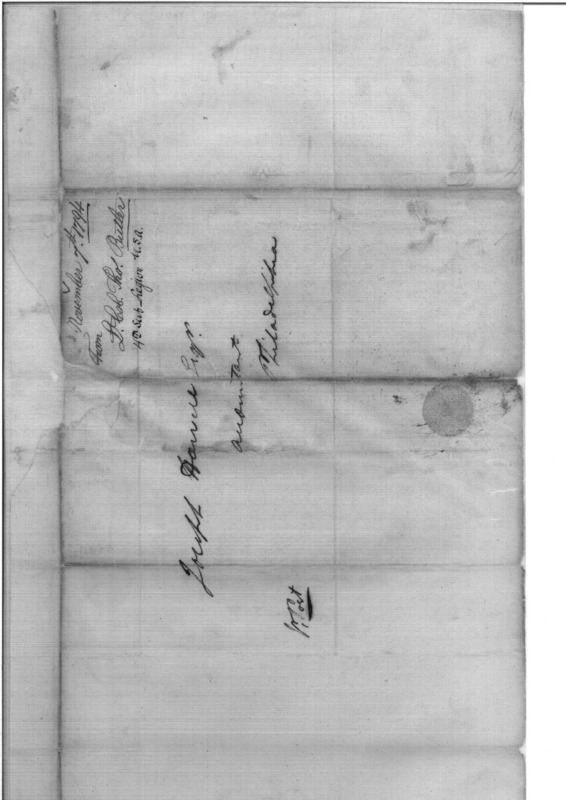 November 7th. 1794
from
Lt. Col. Thos. Butler
4th Sub Legion U.S.A.
Joseph Howell Esqr.
accountant
Philadelphia
pr. Post